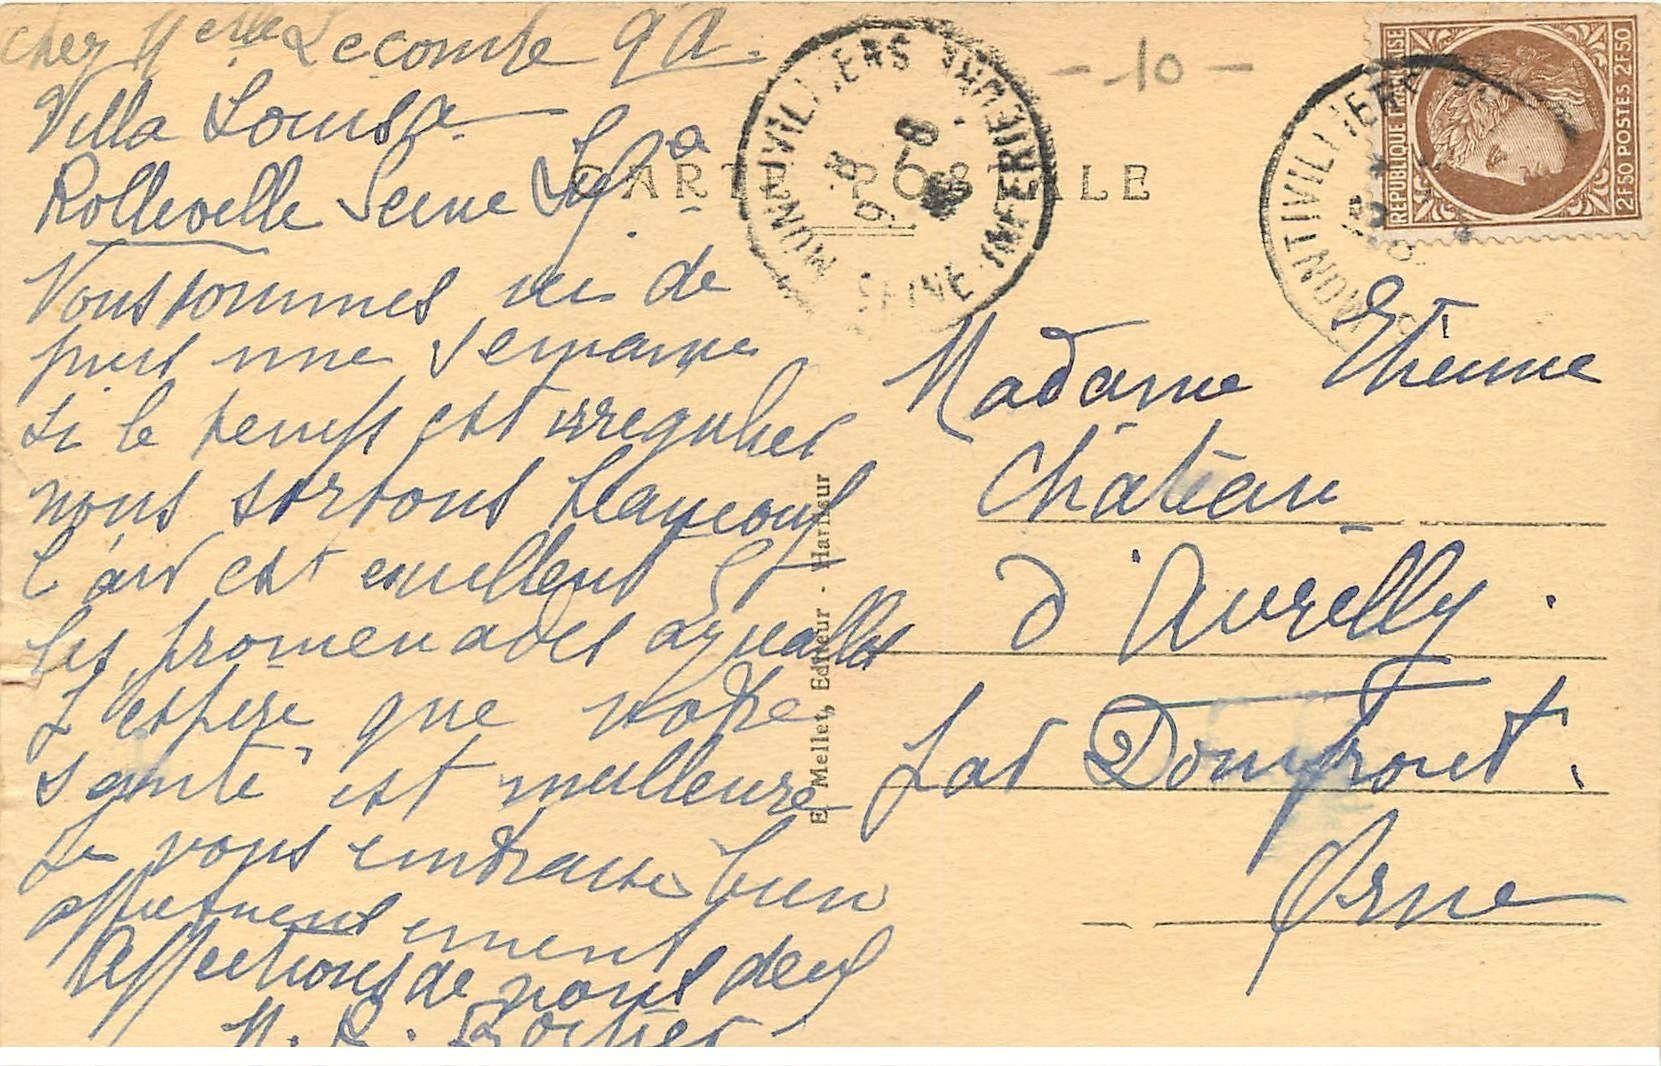 chez Melle Lecomte
Villa Louisa
Rolleville Seine Infre
CARTE POSTALE
Nous sommes ici de
puis une semaine
si le temps est irregulier
nous sortons beaucoup
l'air est excellent et
les promenades
J'espère que votre
santé est meilleure
Je vous embrasse bien
affectueusement
Affections de nous deux
MONTIVILLIERS
SEINE-INFERIEURE
- 10 -
MONTIVILLIERS
REPUBLIQUE FRANÇAISE
2F50 POSTES 2F50
Madame Etienne
Château
d'Avrilly
par Domfront
Orne
E. Mellet, Editeur - Harfleur